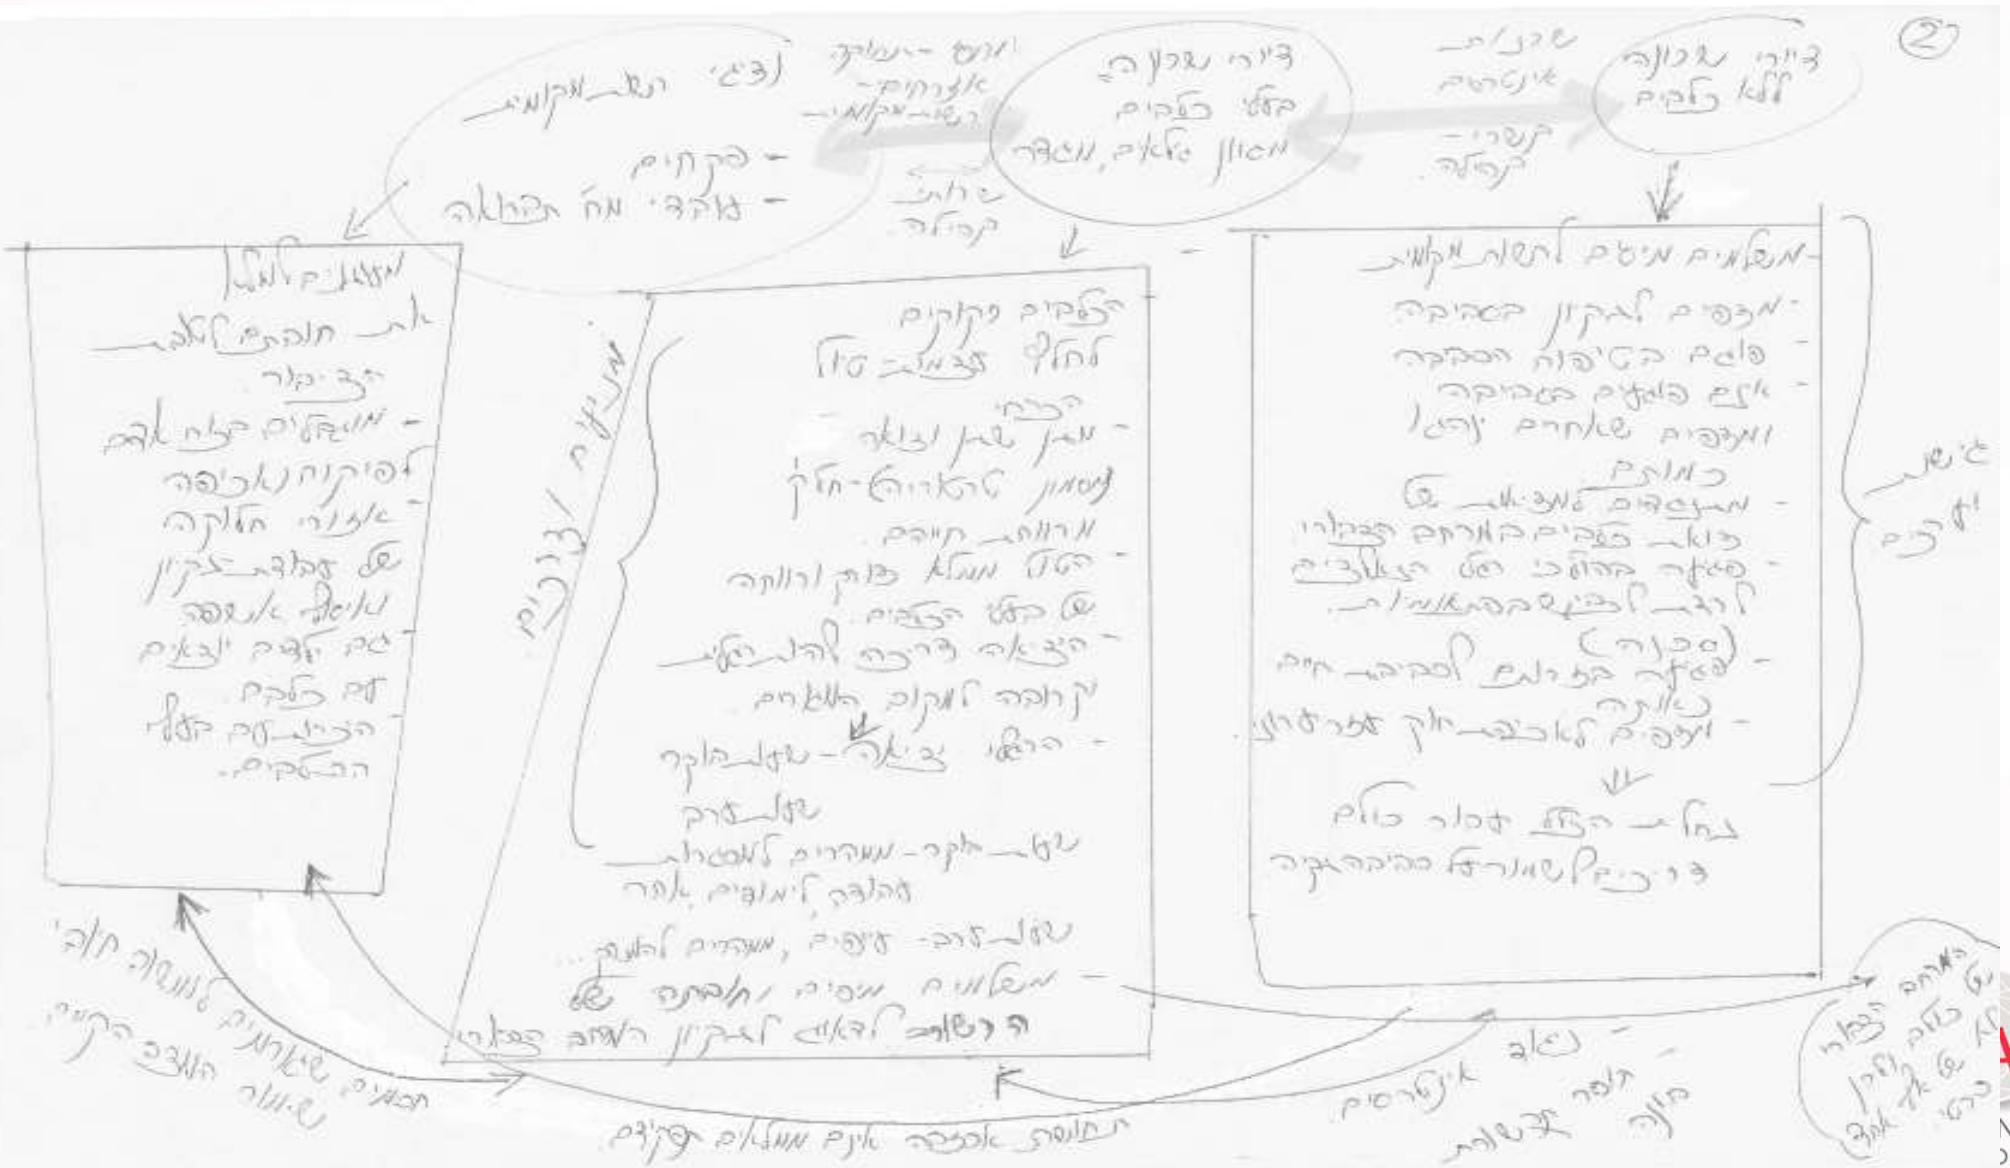 2
דיירי שכונה
ללא כלבים
שכנות
אינטרסים
קשרי -
קהילה
דיירי שכונה
בעלי כלבים
מגוון גילאים, מגדר
אזרחים -
רשות מקומית
שרותי
קהילה
נציגי רשות מקומית
- פקחים
- עובדי מח' תברואה
- משלמים מיסים לרשות מקומית
- מצפים לנקיון בסביבה
- פוגם בטיפוח הסביבה
- אינם פוגעים בסביבה
ומצפים שאחרים ינהגו
כמותם
- מתנגדים למציאות של
צואת כלבים במרחב הציבורי
- פגיעה בהולכי רגל הנאלצים
לרדת לכביש בפתאומיות.
(סכנה)
- פגיעה בזכותם לסביבת חיים
נאותה
- מצפים לאכיפת חוק עזר עירוני.
נחלת הכלל עבור כולם
צריכים לשמור על סביבה נקיה
גישות
וערכים
הכלבים זקוקים
לחלץ עצמות - טיול
הכרחי
- מתן שתן וצואה
וסימון טריטוריה - חלק
מרווחת חייהם.
- הטיול ממלא פנאי ורווחה
של בעלי הכלבים.
- היציאה צריכה להיות רגלית
וקרובה למקום המגורים.
- הרגלי יציאה - שעות הבוקר
שעות ערב
שעות בוקר - ממהרים למסגרות
עבודה, לימודים, אחר
שעות ערב - עייפים, ממהרים להספיק...
- משלמים מיסים וחובתה של
הרשות לדאוג לנקיון המרחב הציבורי
מניעים וצרכים
מעוניינים למלא
את חובתם לטובת
הציבור.
- מוגבלים בכוח אדם
לפיקוח ואכיפה
- אזורי חלוקה
של עבודת נקיון
ואיסוף אשפה
- גם ילדים יוצאים
עם כלבם.
- הכרות עם בעלי
הכלבים.
חסמים שגורמים
שימור המצב הקיים.
תחושת אכזבה אינם ממלאים תפקידם.
- ניגוד אינטרסים.
- חוסר תקשורת
המרחב הציבורי
של כולם ולכן
לא של אף אחד
פרטי.